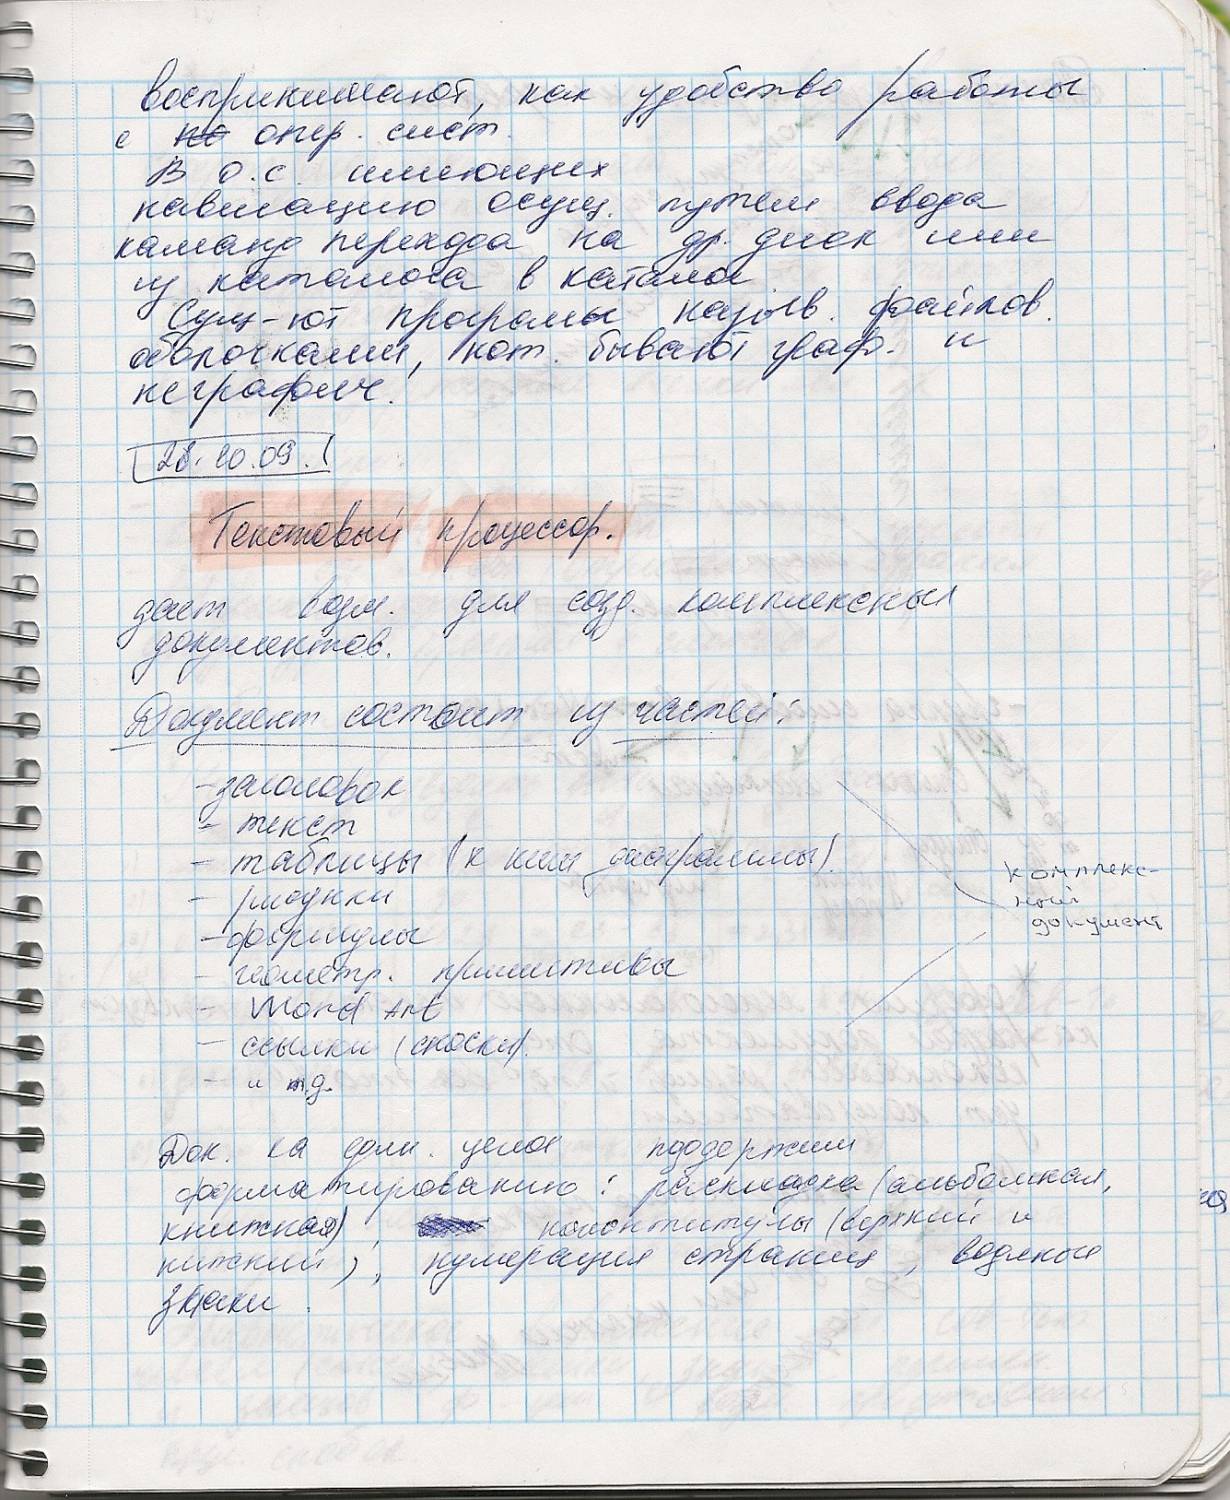 воспринимают, как удобство работы
с но опер. сист.
В О.С. имеющих
навигацию осущ. путем ввода
команд перехода на др. диск или
из каталога в каталог.
Сущ-ют програмы назыв. файлов.
оболочками, кот. бывают граф. и
неграфич.
28.10.09.
Текстовый процессор.
дает возм. для созд. комплексных
документов.
Документ состоит из частей:
- заголовок
- текст
- таблицы (к ним диаграммы).
- рисунки
- формулы
- геометр. примитивы
- Word Art
- ссылки (сноски).
- и т.д.
комплекс-
ный
документ
Док. как целое
форматированию: раскладка (альбомная,
книжная), колонтитулы (верхний и
нижний), нумерация страниц, водяные
знаки.